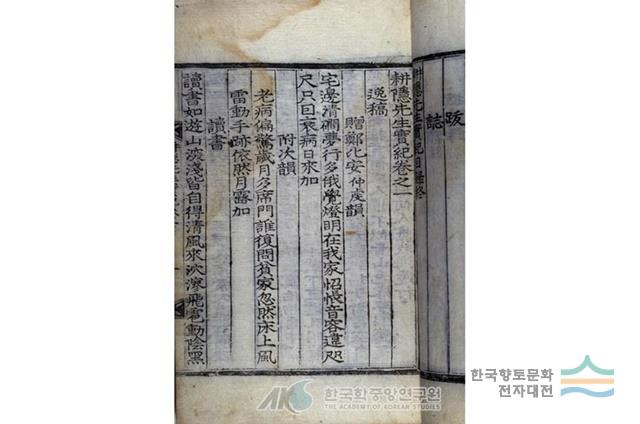 跋
誌
耕隱先生實紀目錄終
耕隱先生實紀卷之一
逸稿
贈鄭化安仲虔韻
宅邊清磵夢行多俄覺燈明在我家怊悵音容違咫
尺只回衰病日來加
附次韻
老病偏驚歲月多席門誰復問貧家忽然床上風
雷動手跡依然月露加
讀書
讀書如遊山深淺皆自得清風來泬漻飛雹動陰黑
한국학중앙연구원
THE ACADEMY OF KOREAN STUDIES
한국향토문화
전자대전